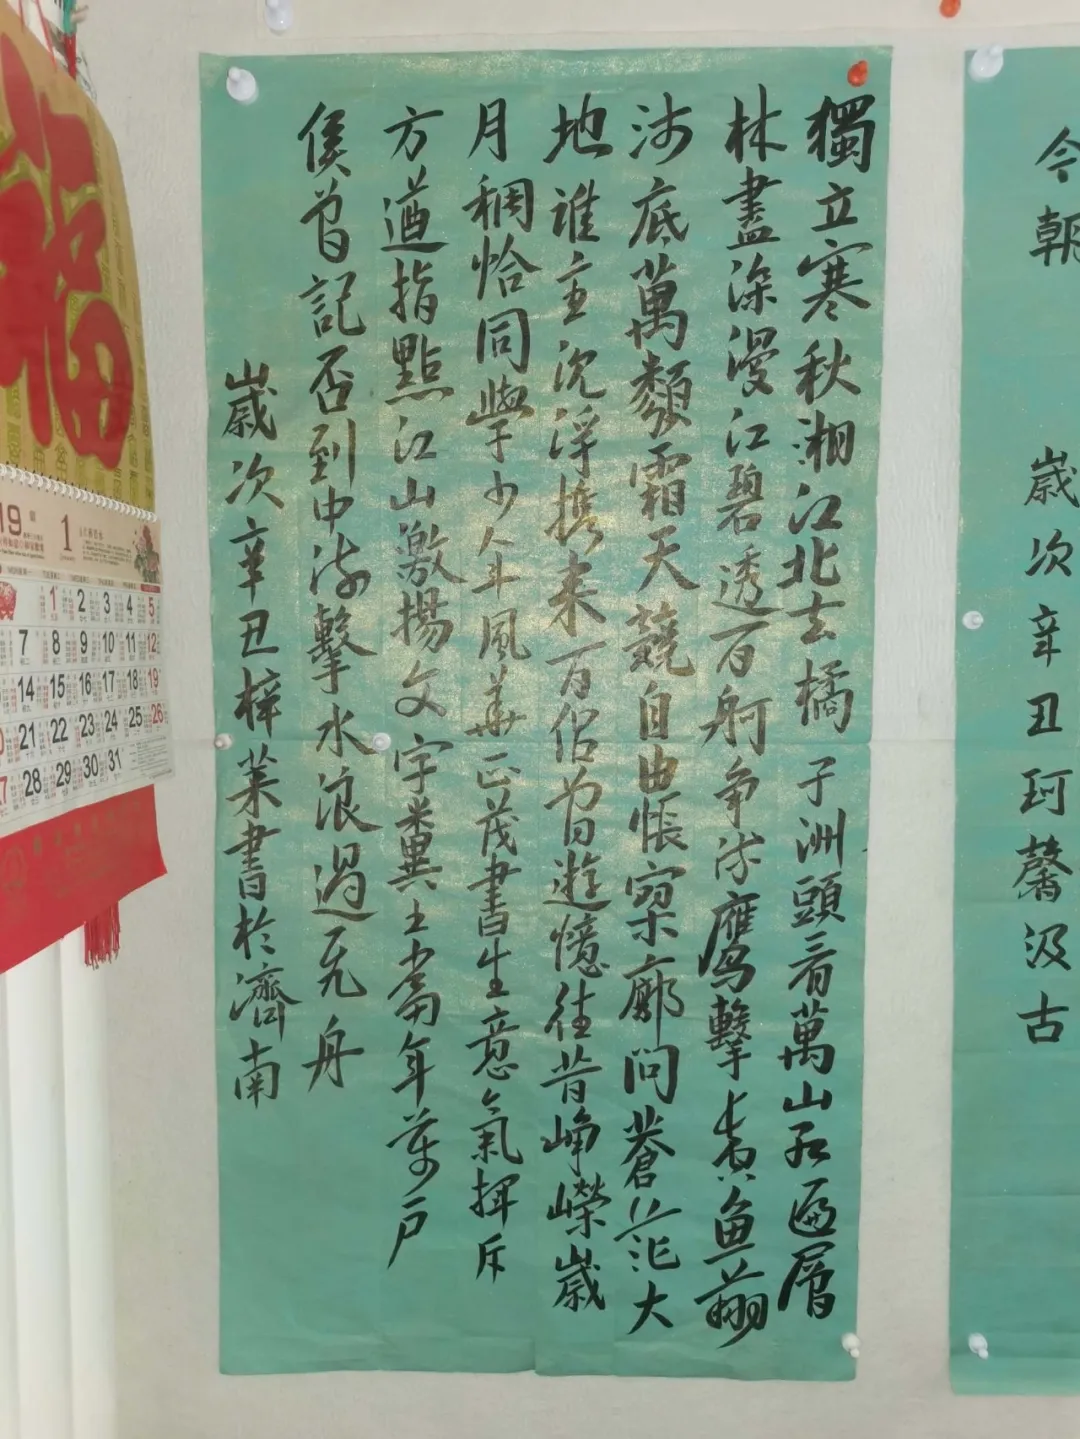 今朝
歲次辛丑珂馨汲古
獨立寒秋湘江北去橘子洲頭看萬山红遍層
林盡染漫江碧透百舸争流鷹擊長空鱼翔
浅底萬類霜天競自由悵寥廓問蒼茫大
地誰主沉浮携来百侣曾遊憶往昔崢嶸歲
月稠恰同學少年風華正茂書生意氣揮斥
方遒指點江山激揚文字糞土當年萬户
侯曾記否到中流擊水浪遏飞舟
歲次辛丑梓菜書於濟南
福
19 1
1 2 3 4 5
7 8 9 10 11 12
14 15 16 17 18 19
21 22 23 24 25 26
27 28 29 30 31